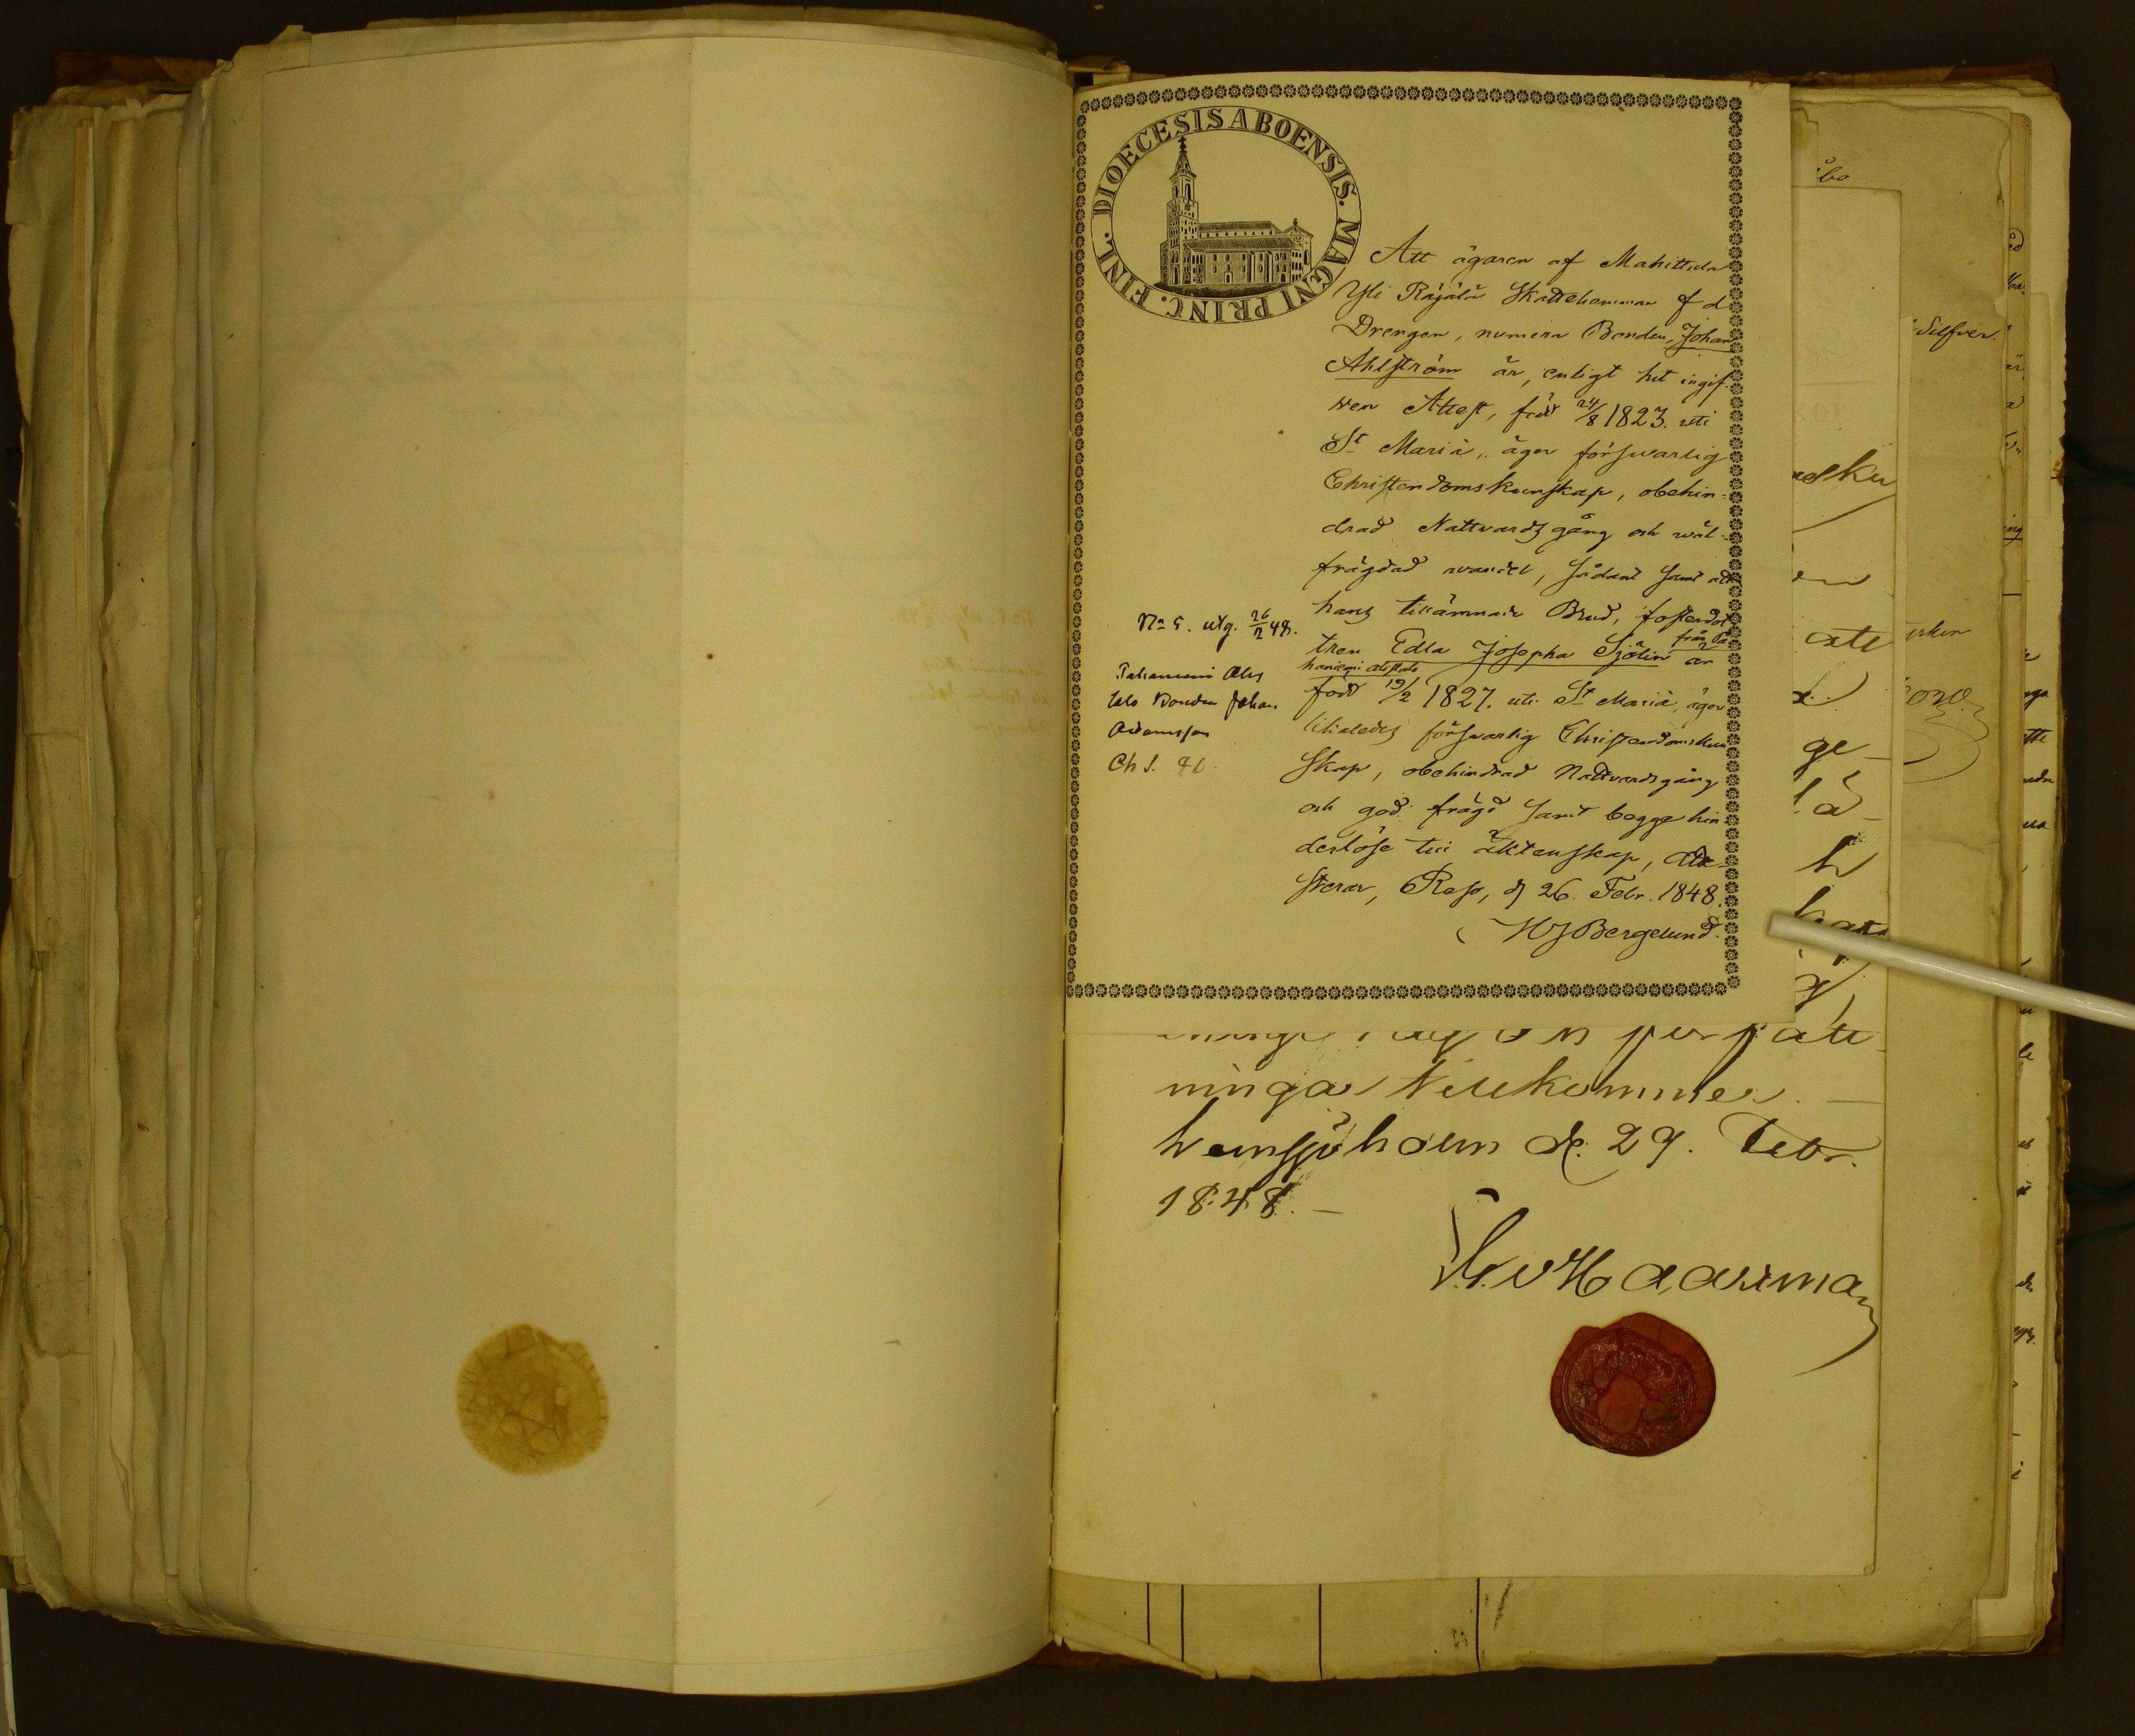 DIOECESIS ABOENSIS. MAGNI PRINC. FINL.
Att ägaren af Mahittula
Yli Räjälä Skattehemman f d
Drengen, numera Bonden, Johan
Ahlström är, enligt hit ingif-
ven Attest, född 24/8 1823. uti
St Mariæ, äger försvarlig
Christendomskunskap, obehin-
drad Nattvardsgång och väl-
frägdad vandel, sådant samt att
hans tillämnade Brud, fosterdot
tren Edla Josepha Sjölin från Pa
haniemi är
född 19/2 1827. uti St Mariæ, äger
likaledes försvarlig Christendomskun
skap, obehindrad Nattvardsgång
och god frägd samt begge hin-
derlöse till äktenskap, atte-
sterar, Reso, d 26. Febr. 1848.
HJBergelund.
No 5. utg. 26/2 48.
Pahaniemi
Bonden Johan
Adamsson
ninga tillkommer.
d. 29. Febr.
1848.
Haartman
åbo
Silfver.
ge
h